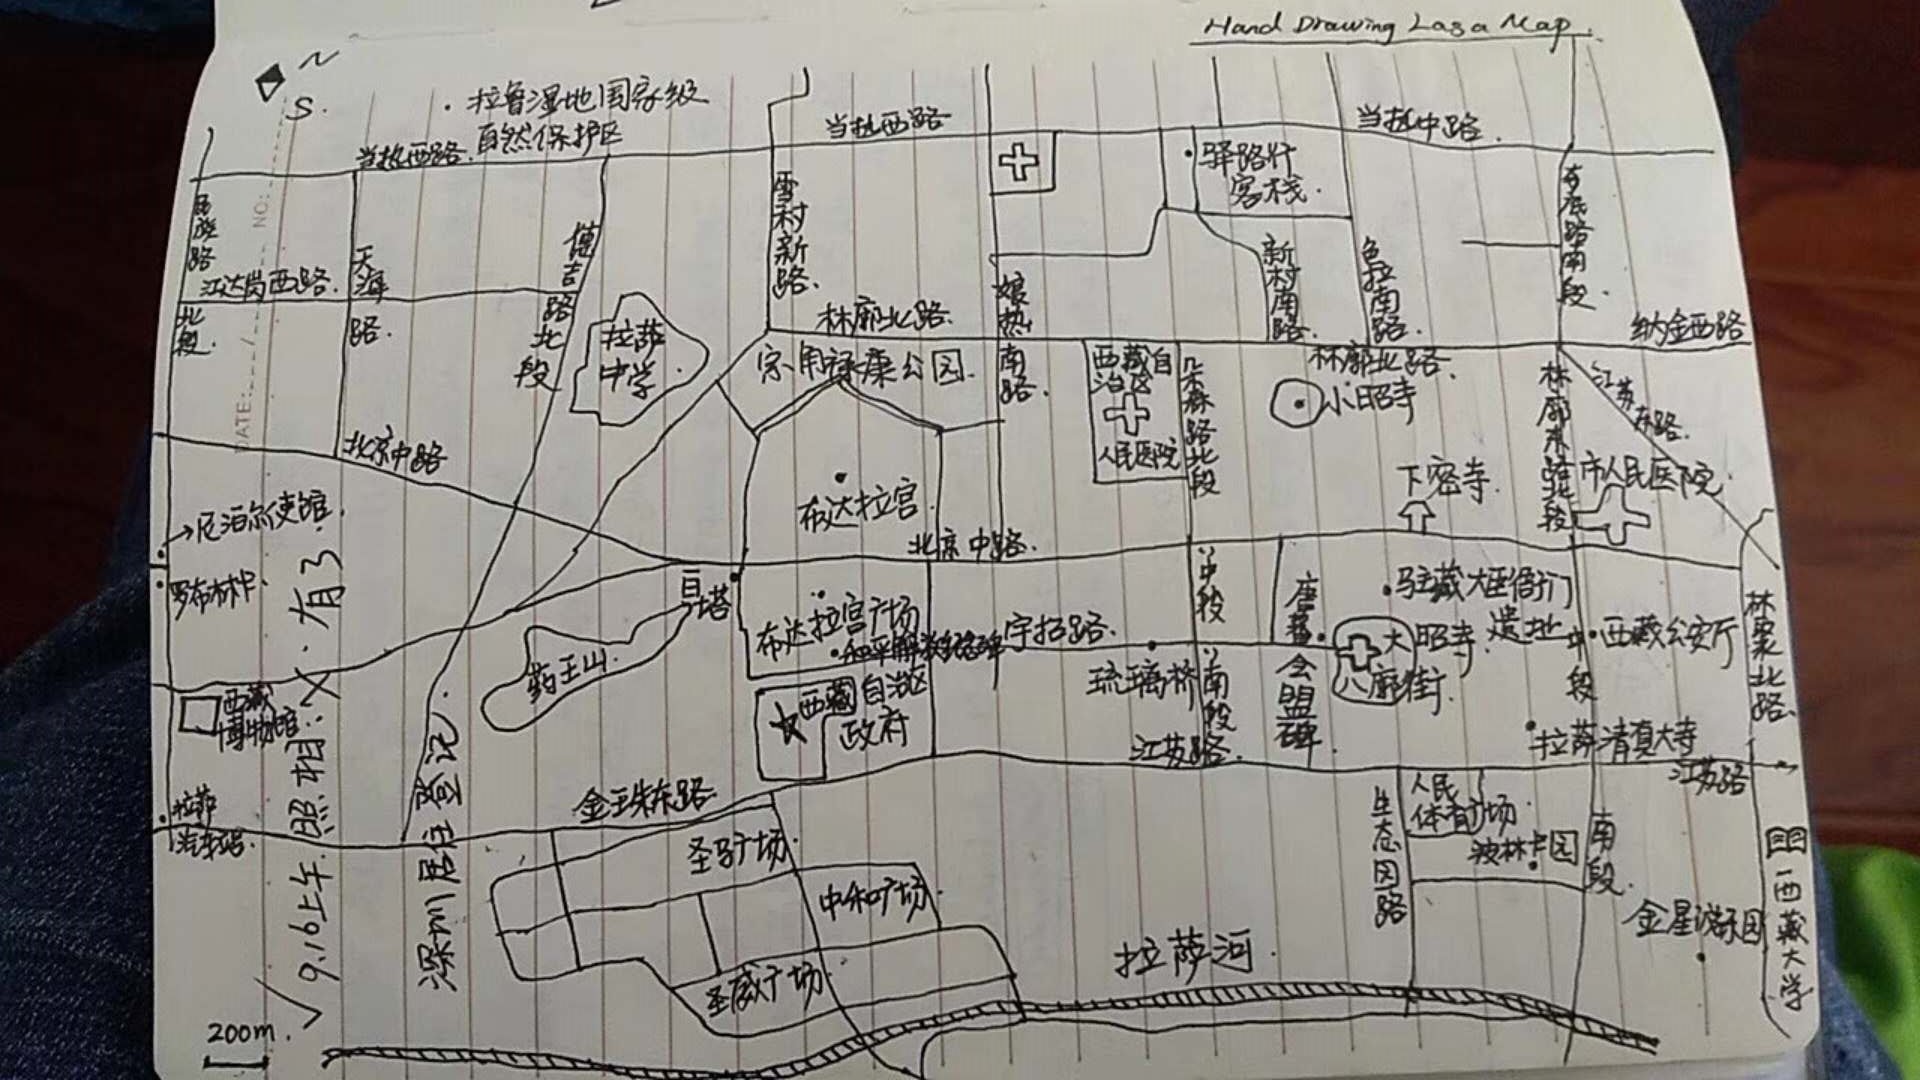 Hand Drawing Lasa Map.
N
S.
拉鲁湿地国家级
自然保护区
当热西路.
当热西路
当热中路.
NO:
DATE: / /
民族路
北段.
江达岗西路.
天海路.
德吉路北段
雪村新路.
驿路
客栈.
夺底路南段.
新村南路.
色拉南路.
娘热南路.
拉萨
中学.
林廓北路.
林廓北路.
纳金西路
宗角禄康公园.
西藏自
治区
人民医院
朵森路北段
小昭寺
林廓东路北段
江苏东路.
北京中路
市人民医院.
下密寺.
布达拉宫.
北京中路.
→尼泊尔领使馆.
罗布林卡.
白塔
药王山.
布达拉宫广场
和平解放纪念碑
宇拓路.
中段
唐蕃
会盟碑.
驻藏大臣衙门
遗址
大昭寺.
八廓街.
中段
西藏公安厅
林聚北路.
西藏
博物馆.
西藏自治区
政府
琉璃桥
南段
江苏路.
拉萨清真大寺
江苏路
拉萨
汽车站.
金珠东路
圣马广场.
中和广场.
圣威广场.
生态园路
人民
体育广场
波林卡园
南段.
金星游乐园
西藏大学
拉萨河.
深圳居住登记.
√ 9.16上午. 照相. X. 有3
200m.